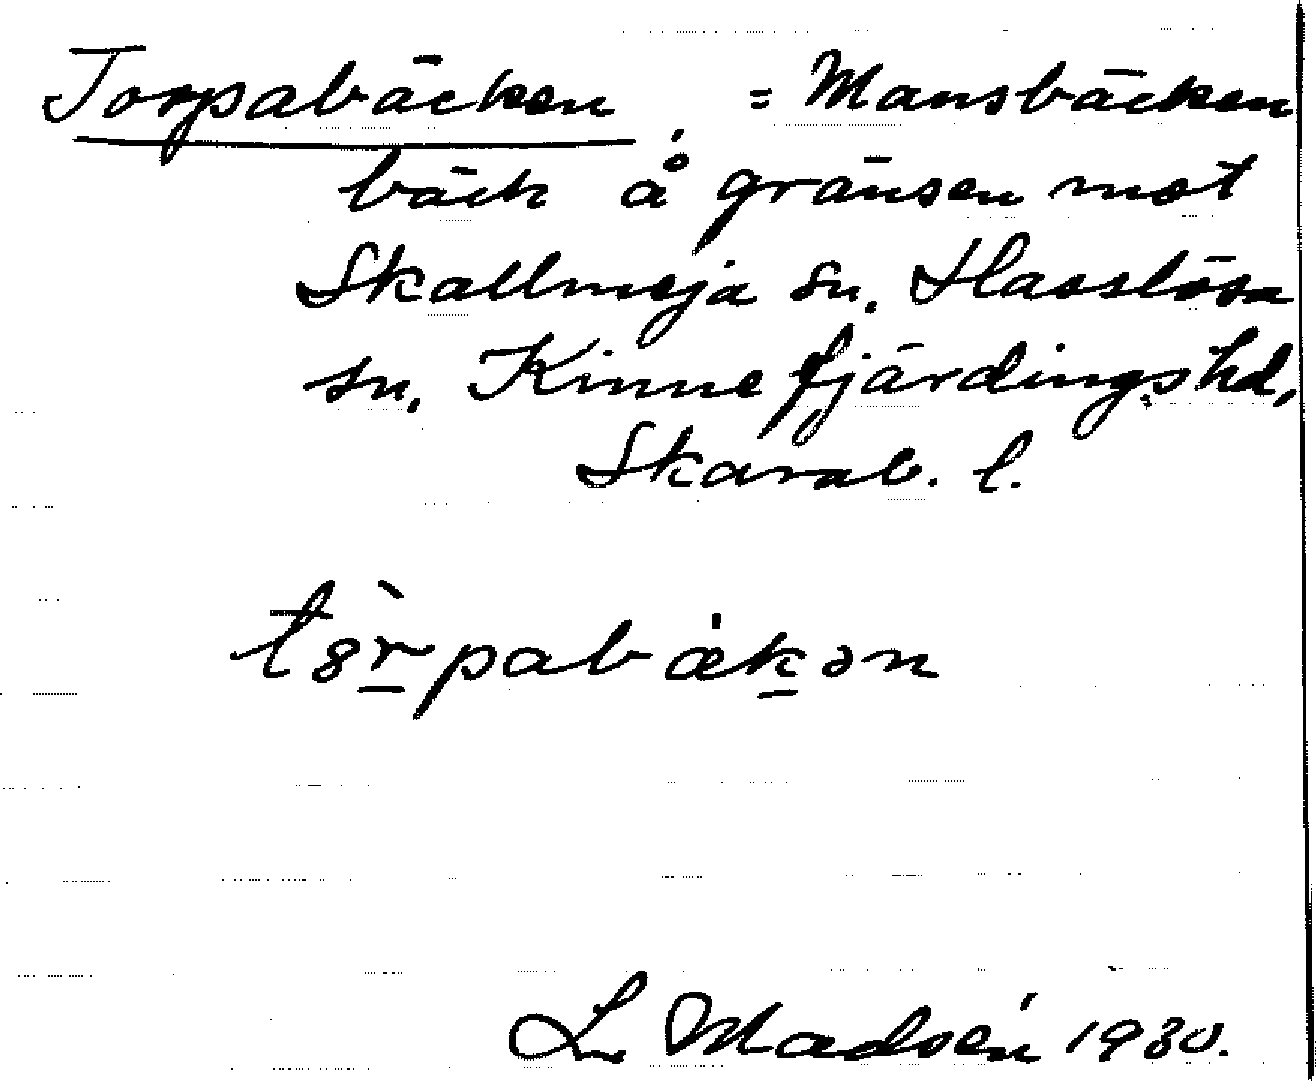 Torpabäcken = Mansbäcken
bäck å gränsen mot
Skallmeja sn. Hasslösa
sn. Kinnefjärdingshd,
Skarab. l.
tȣ̀r̲pabæ̍k̲ən
L Madsén 1930.